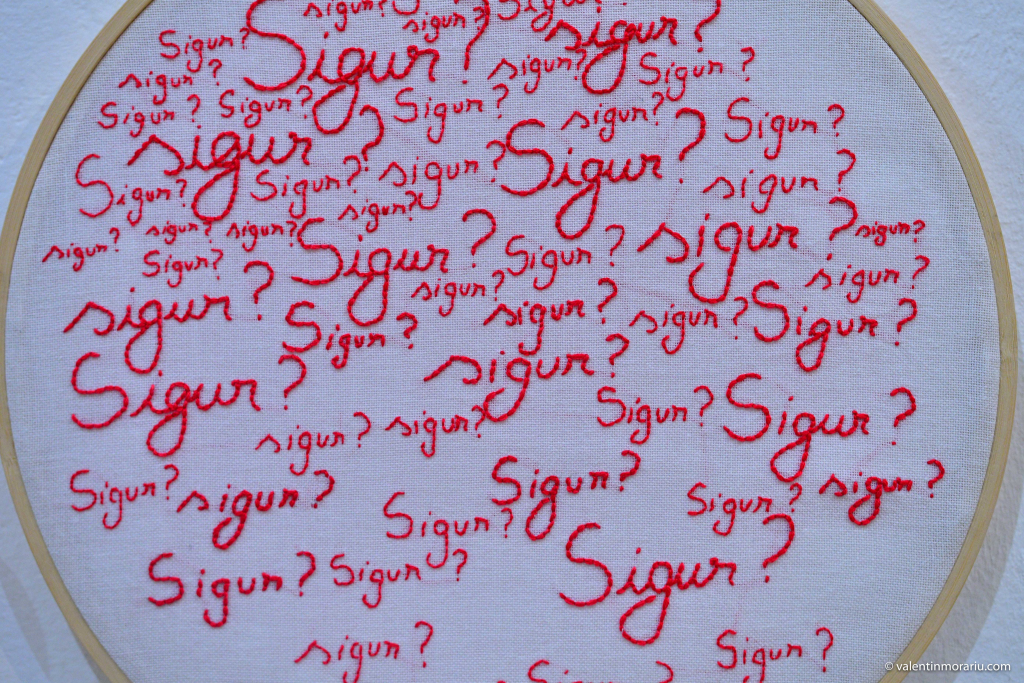 sigur?
Sigur?
sigur?
Sigur?
Sigur? sigur?
sigur? sigur? Sigur?
Sigur? Sigur? Sigur? sigur? Sigur?
sigur? Sigur?
Sigur? Sigur? sigur? sigur?
sigur?
sigur? sigur? sigur? Sigur? Sigur? sigur? sigur?
Sigur? sigur? sigur?
sigur? Sigur? sigur? sigur? Sigur?
Sigur? sigur?
sigur? sigur? Sigur? Sigur?
Sigur? sigur? Sigur? Sigur? sigur?
Sigur?
Sigur? Sigur? Sigur?
sigur? Sigur?
© valentinmorariu.com